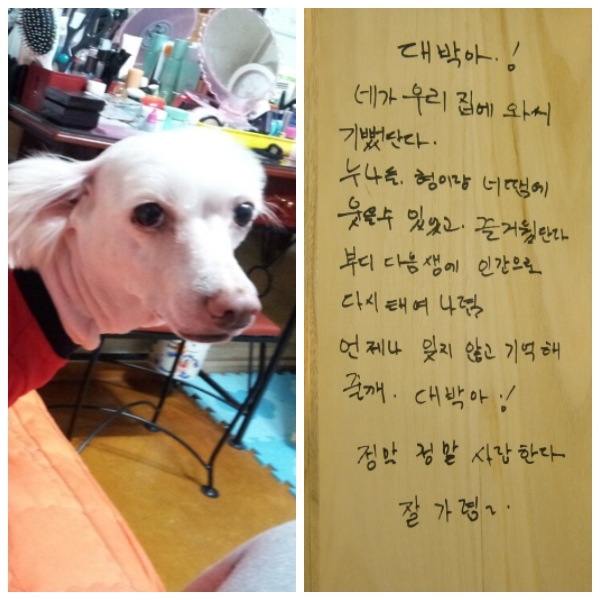 대박아.!
네가 우리 집에 와서
기뻤단다.
누나들. 형이랑 너땜에
웃을수 있었고. 즐거웠단다
부디 다음생에 인간으로
다시 태여 나렴
언제나 잊지 않고 기억해
줄께. 대박아!
정말 정말 사랑한다
잘 가렴~.